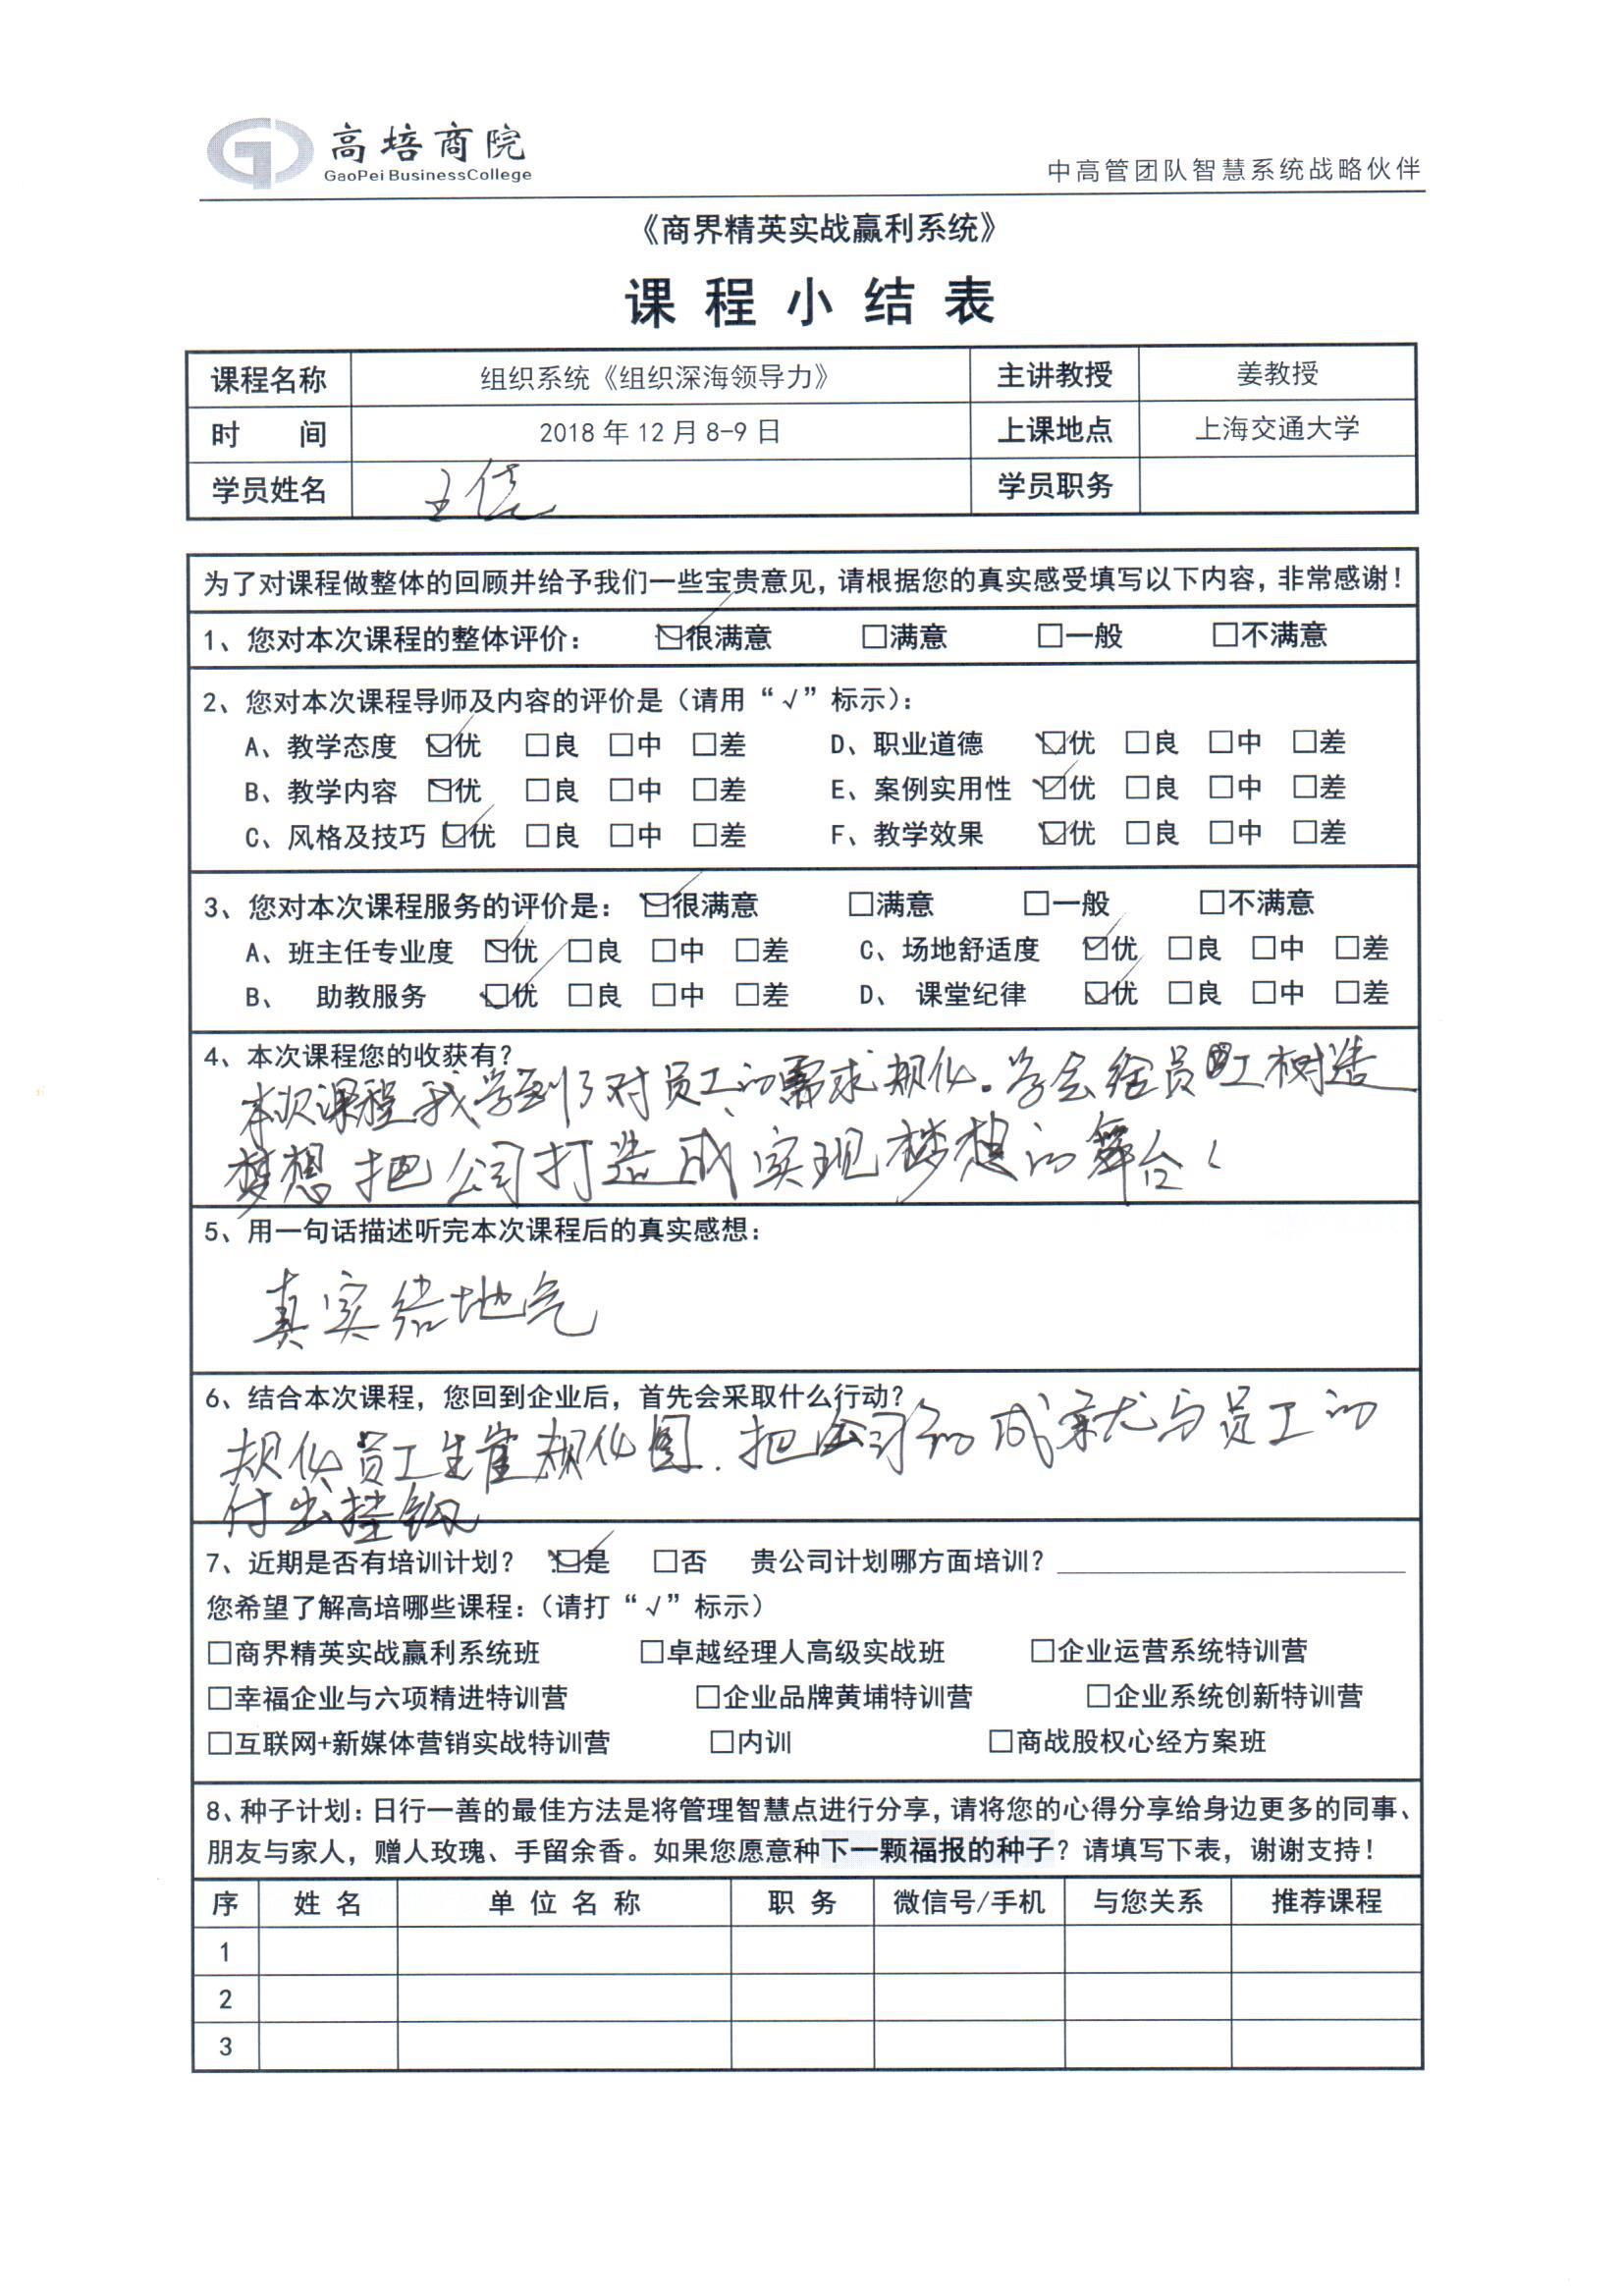 高培商院
GaoPei BusinessCollege
中高管团队智慧系统战略伙伴
《商界精英实战赢利系统》
课程小结表
课程名称 组织系统《组织深海领导力》 主讲教授 姜教授
时 间 2018年12月8-9日 上课地点 上海交通大学
学员姓名 王 学员职务
为了对课程做整体的回顾并给予我们一些宝贵意见，请根据您的真实感受填写以下内容，非常感谢！
1、您对本次课程的整体评价： ☑很满意 □满意 □一般 □不满意
2、您对本次课程导师及内容的评价是（请用“√”标示）：
A、教学态度 ☑优 □良 □中 □差 D、职业道德 ☑优 □良 □中 □差
B、教学内容 ☑优 □良 □中 □差 E、案例实用性 ☑优 □良 □中 □差
C、风格及技巧 ☑优 □良 □中 □差 F、教学效果 ☑优 □良 □中 □差
3、您对本次课程服务的评价是： ☑很满意 □满意 □一般 □不满意
A、班主任专业度 ☑优 □良 □中 □差 C、场地舒适度 ☑优 □良 □中 □差
B、 助教服务 ☑优 □良 □中 □差 D、 课堂纪律 ☑优 □良 □中 □差
4、本次课程您的收获有？
本次课程我学到了对员工的需求规化。学会给员工树造
梦想 把公司打造成实现梦想的舞台
5、用一句话描述听完本次课程后的真实感想：
真实 地气
6、结合本次课程，您回到企业后，首先会采取什么行动？
规化员工生崖规化图．把公司的成就与员工的
付出挂钩
7、近期是否有培训计划？ ☑是 □否 贵公司计划哪方面培训？
您希望了解高培哪些课程：（请打“√”标示）
□商界精英实战赢利系统班 □卓越经理人高级实战班 □企业运营系统特训营
□幸福企业与六项精进特训营 □企业品牌黄埔特训营 □企业系统创新特训营
□互联网+新媒体营销实战特训营 □内训 □商战股权心经方案班
8、种子计划：日行一善的最佳方法是将管理智慧点进行分享，请将您的心得分享给身边更多的同事、
朋友与家人，赠人玫瑰、手留余香。如果您愿意种下一颗福报的种子？请填写下表，谢谢支持！
序 姓 名 单 位 名 称 职 务 微信号/手机 与您关系 推荐课程
1
2
3